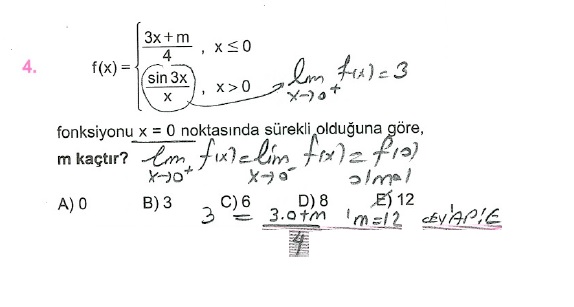 4.
f(x) = { (3x + m)/4 , x ≤ 0
(sin 3x)/x , x > 0
lim f(x) = 3
x→0⁺
fonksiyonu x = 0 noktasında sürekli olduğuna göre,
m kaçtır?
lim f(x) = lim f(x) = f(0)
x→0⁺ x→0⁻ olmalı
A) 0 B) 3 C) 6 D) 8 E) 12
3 = (3.0+m)/4 m=12 CEVAP:E